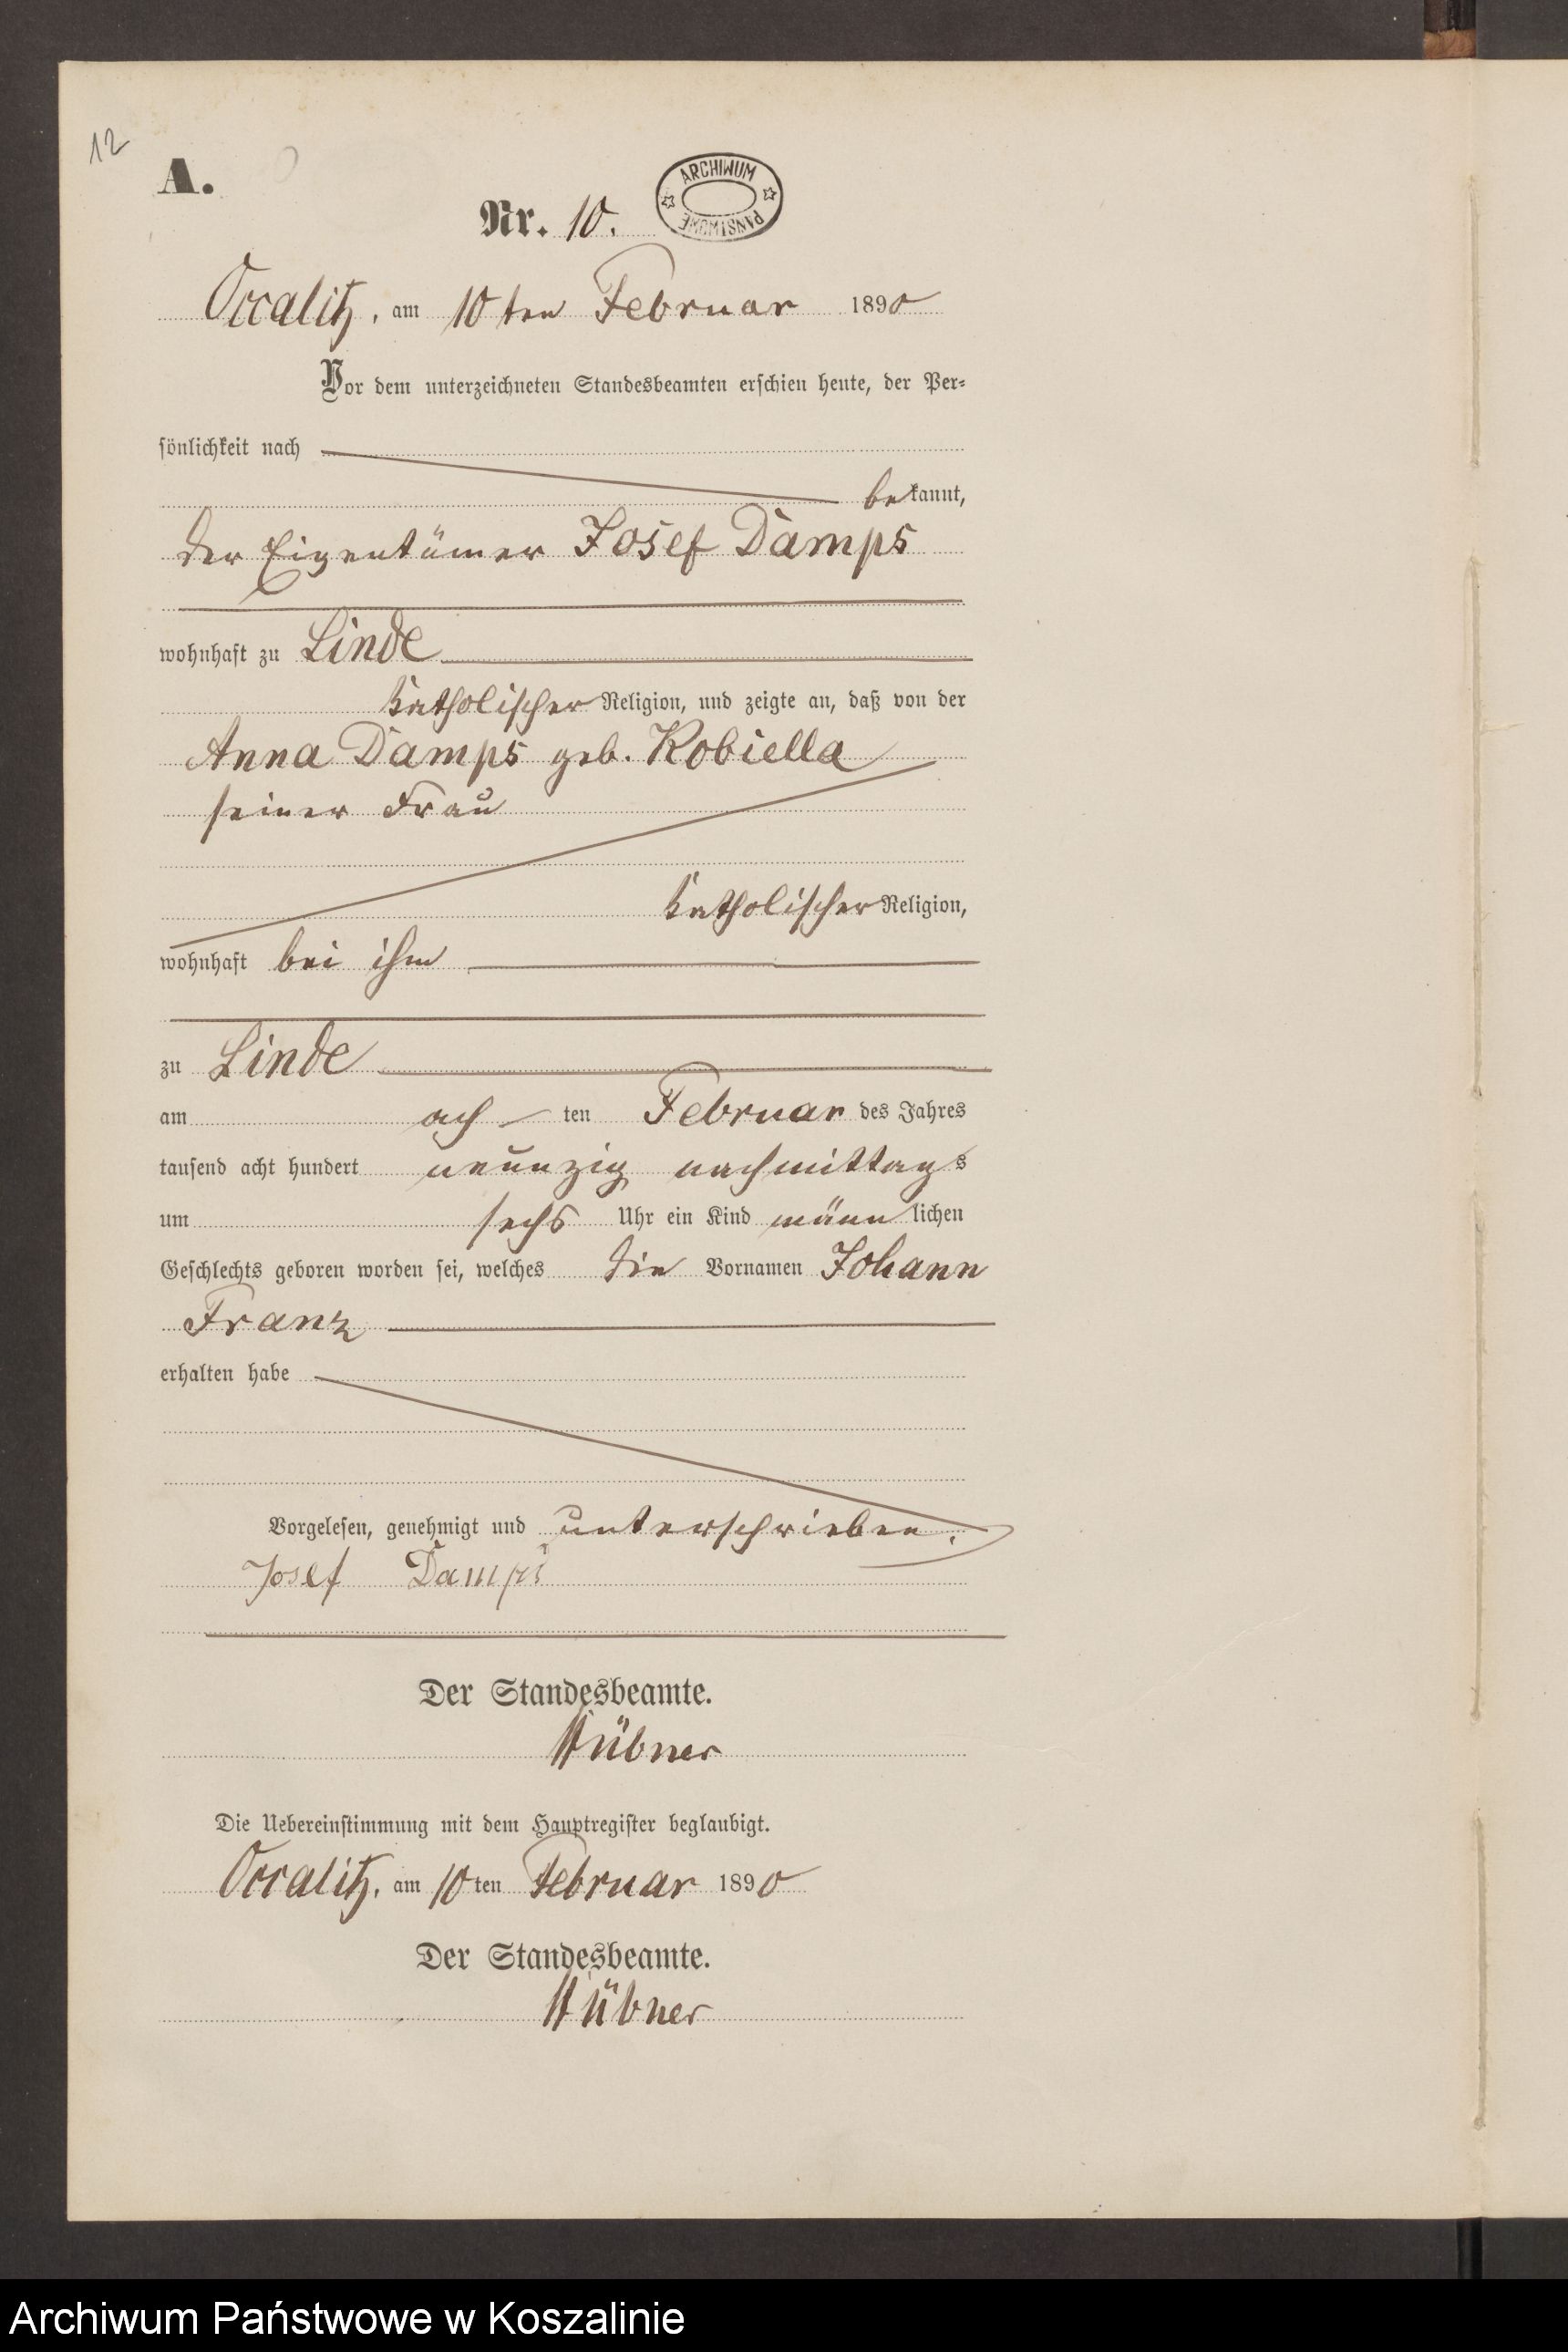 12
A.
ARCHIWUM PAŃSTWOWE
Nr. 10.
Occalitz, am 10 ten Februar 1890
Vor dem unterzeichneten Standesbeamten erschien heute, der Per-
sönlichkeit nach
bekannt,
der Eigentümer Josef Damps
wohnhaft zu Linde
katholischer Religion, und zeigte an, daß von der
Anna Damps geb. Kobiella
seiner Frau
katholischer Religion,
wohnhaft bei ihm
zu Linde
am ach ten Februar des Jahres
tausend acht hundert neunzig nachmittags
um sechs Uhr ein Kind männlichen
Geschlechts geboren worden sei, welches die Vornamen Johann
Franz
erhalten habe
Vorgelesen, genehmigt und unterschrieben.
Josef Damps
Der Standesbeamte.
Hübner
Die Uebereinstimmung mit dem Hauptregister beglaubigt.
Occalitz, am 10 ten Februar 1890
Der Standesbeamte.
Hübner
Archiwum Państwowe w Koszalinie